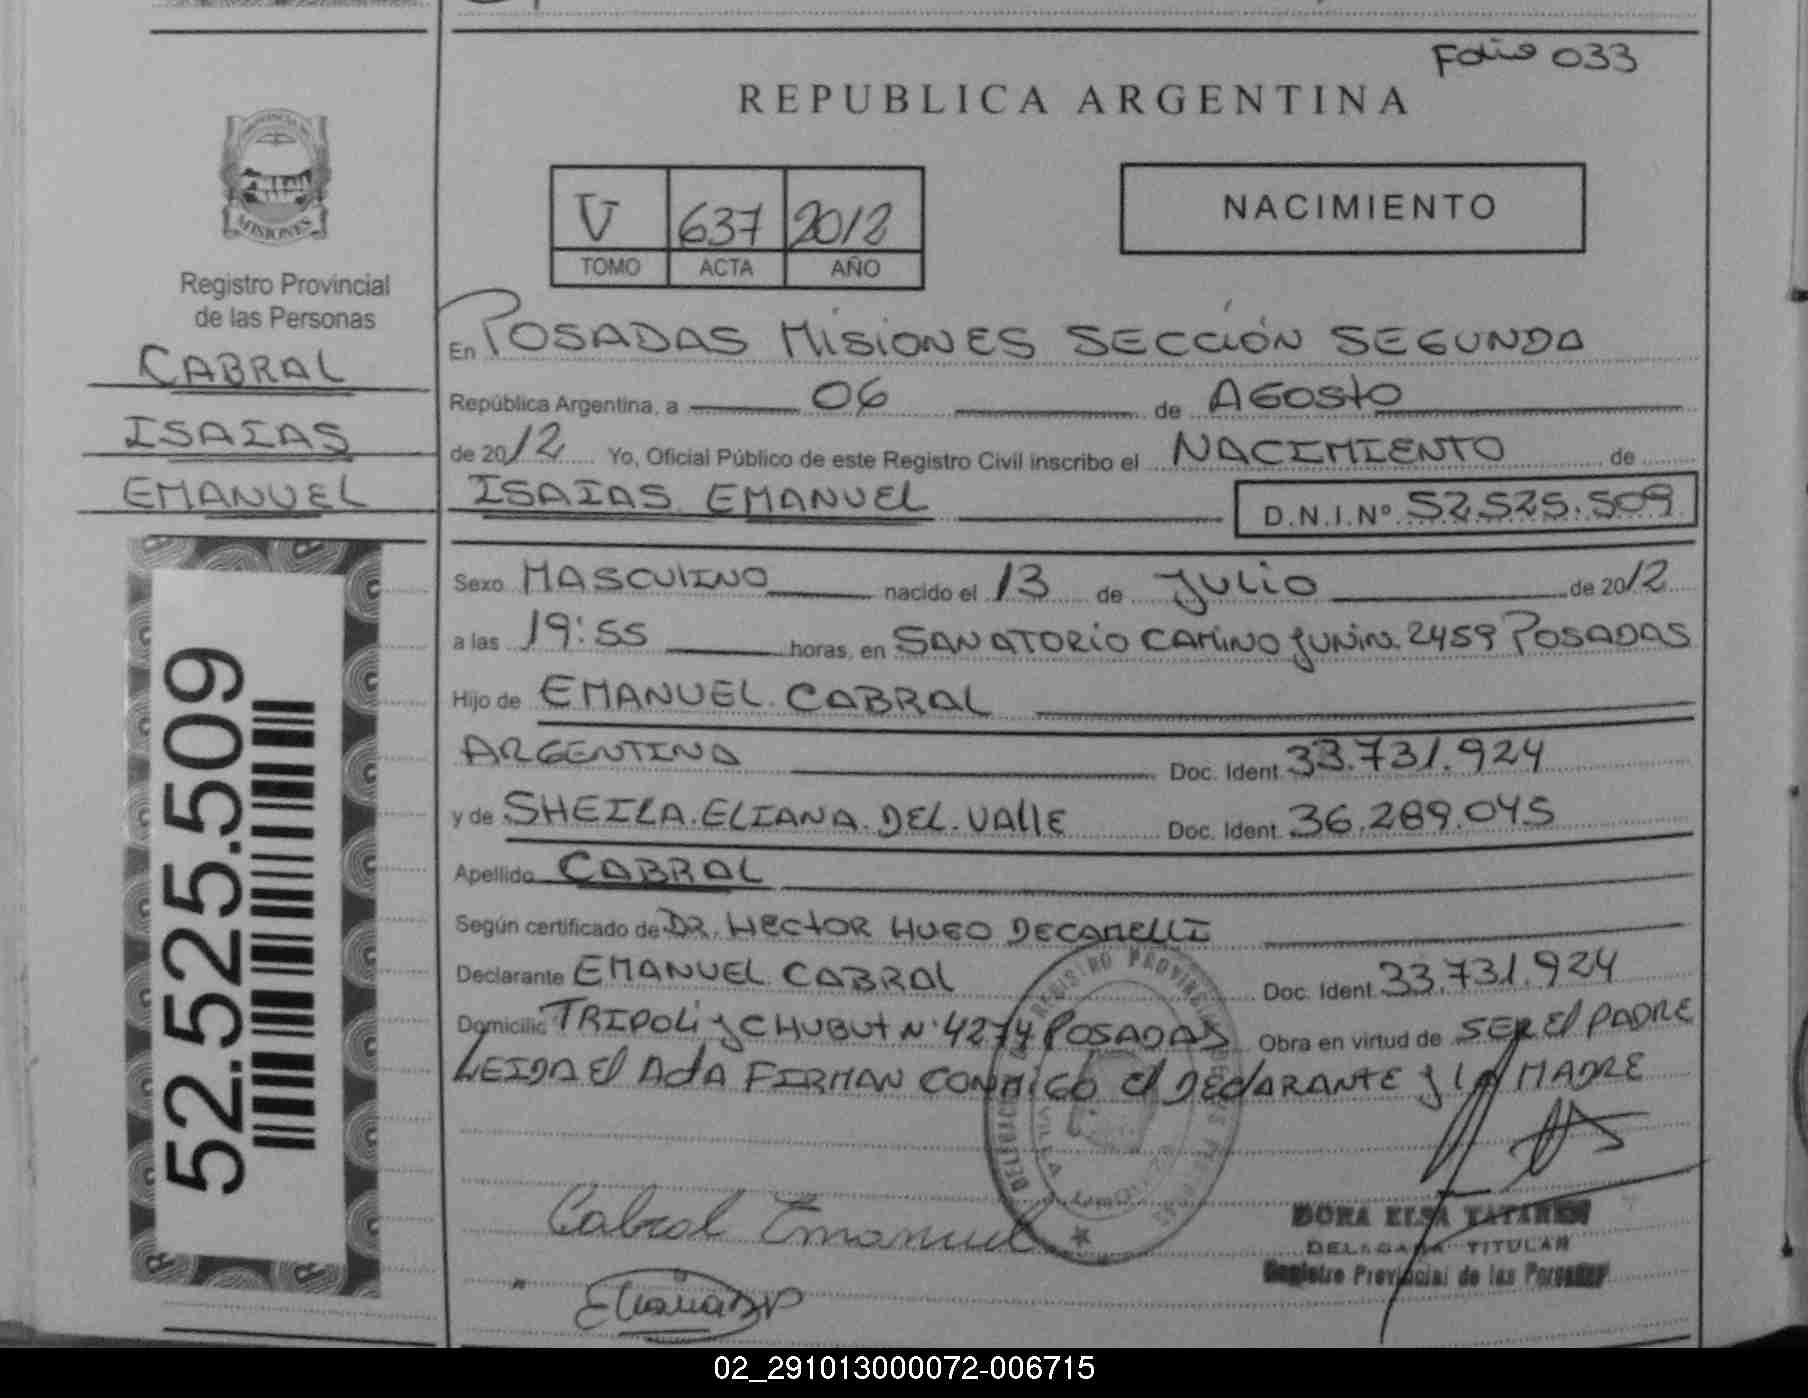 Folio 033
REPUBLICA ARGENTINA
PROVINCIA DE
MISIONES
V 637 2012
TOMO ACTA AÑO
NACIMIENTO
Registro Provincial
de las Personas
CABRAL
ISAIAS
EMANUEL
52.525.509
En POSADAS MISIONES SECCIÓN SEGUNDA
República Argentina, a 06 de AGOSTO
de 2012 Yo, Oficial Público de este Registro Civil inscribo el NACIMIENTO de
ISAIAS EMANUEL D.N.I.Nº 52.525.509
Sexo MASCULINO nacido el 13 de JULIO de 2012
a las 19:55 horas, en SANATORIO CAMINO JUNIN 2459 POSADAS
Hijo de EMANUEL CABRAL
ARGENTINA Doc. Ident. 33.731.924
y de SHEILA ELIANA DEL VALLE Doc. Ident. 36.289.045
Apellido CABRAL
Según certificado de DR. HECTOR HUGO DECAMELLI
Declarante EMANUEL CABRAL Doc. Ident. 33.731.924
Domicilio TRIPOLI y CHUBUT Nº 4274 POSADAS Obra en virtud de SER El PADRE
LEIDA El ActA FIRMAN CONMIGO El DEClARANTE y LA MADRE
REGISTRO PROVINCIAL
Cabral Emanuel
DORA ELSA
DELEGADA TITULAR
Registro Provincial de las Personas
02_291013000072-006715